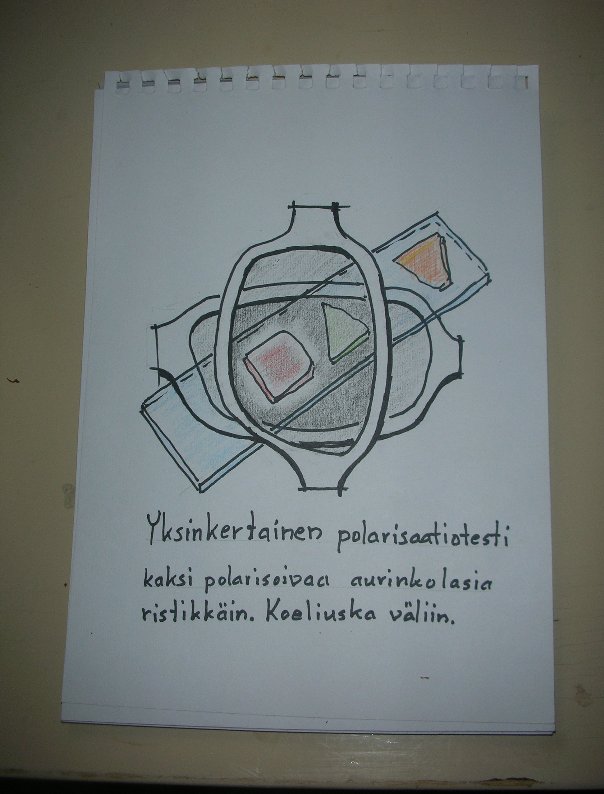 Yksinkertainen polarisaatiotesti
kaksi polarisoivaa aurinkolasia
ristikkäin. Koeliuska väliin.